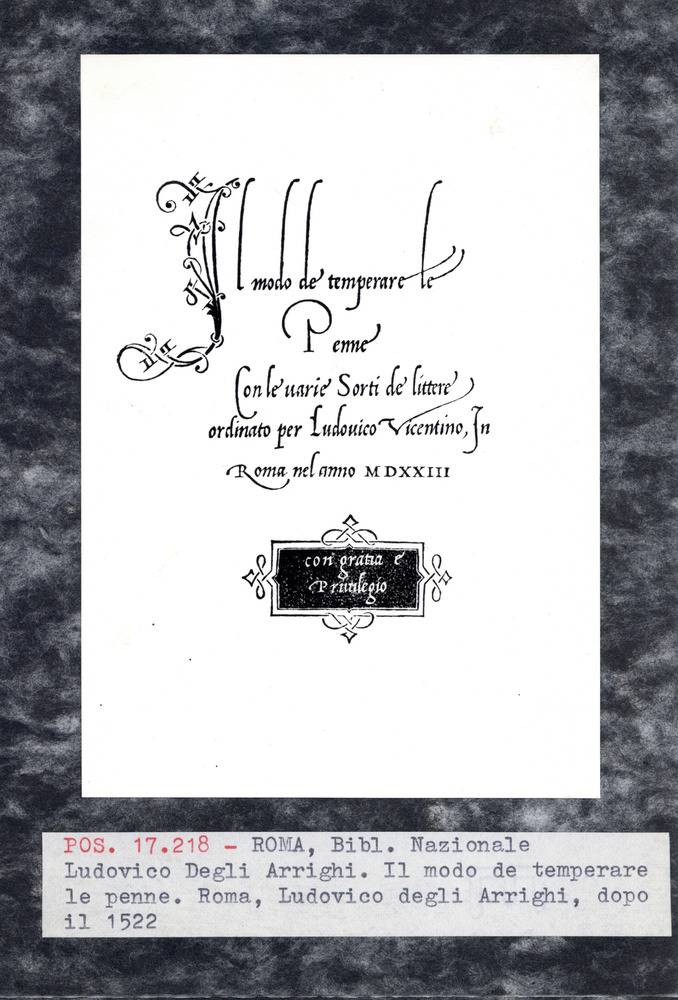 Il modo de temperare le
Penne
Con le uarie Sorti de littere
ordinato per Ludouico Vicentino, In
Roma nel anno MDXXIII
con gratia e
Priuilegio
POS. 17.218 - ROMA, Bibl. Nazionale
Ludovico Degli Arrighi. Il modo de temperare
le penne. Roma, Ludovico degli Arrighi, dopo
il 1522